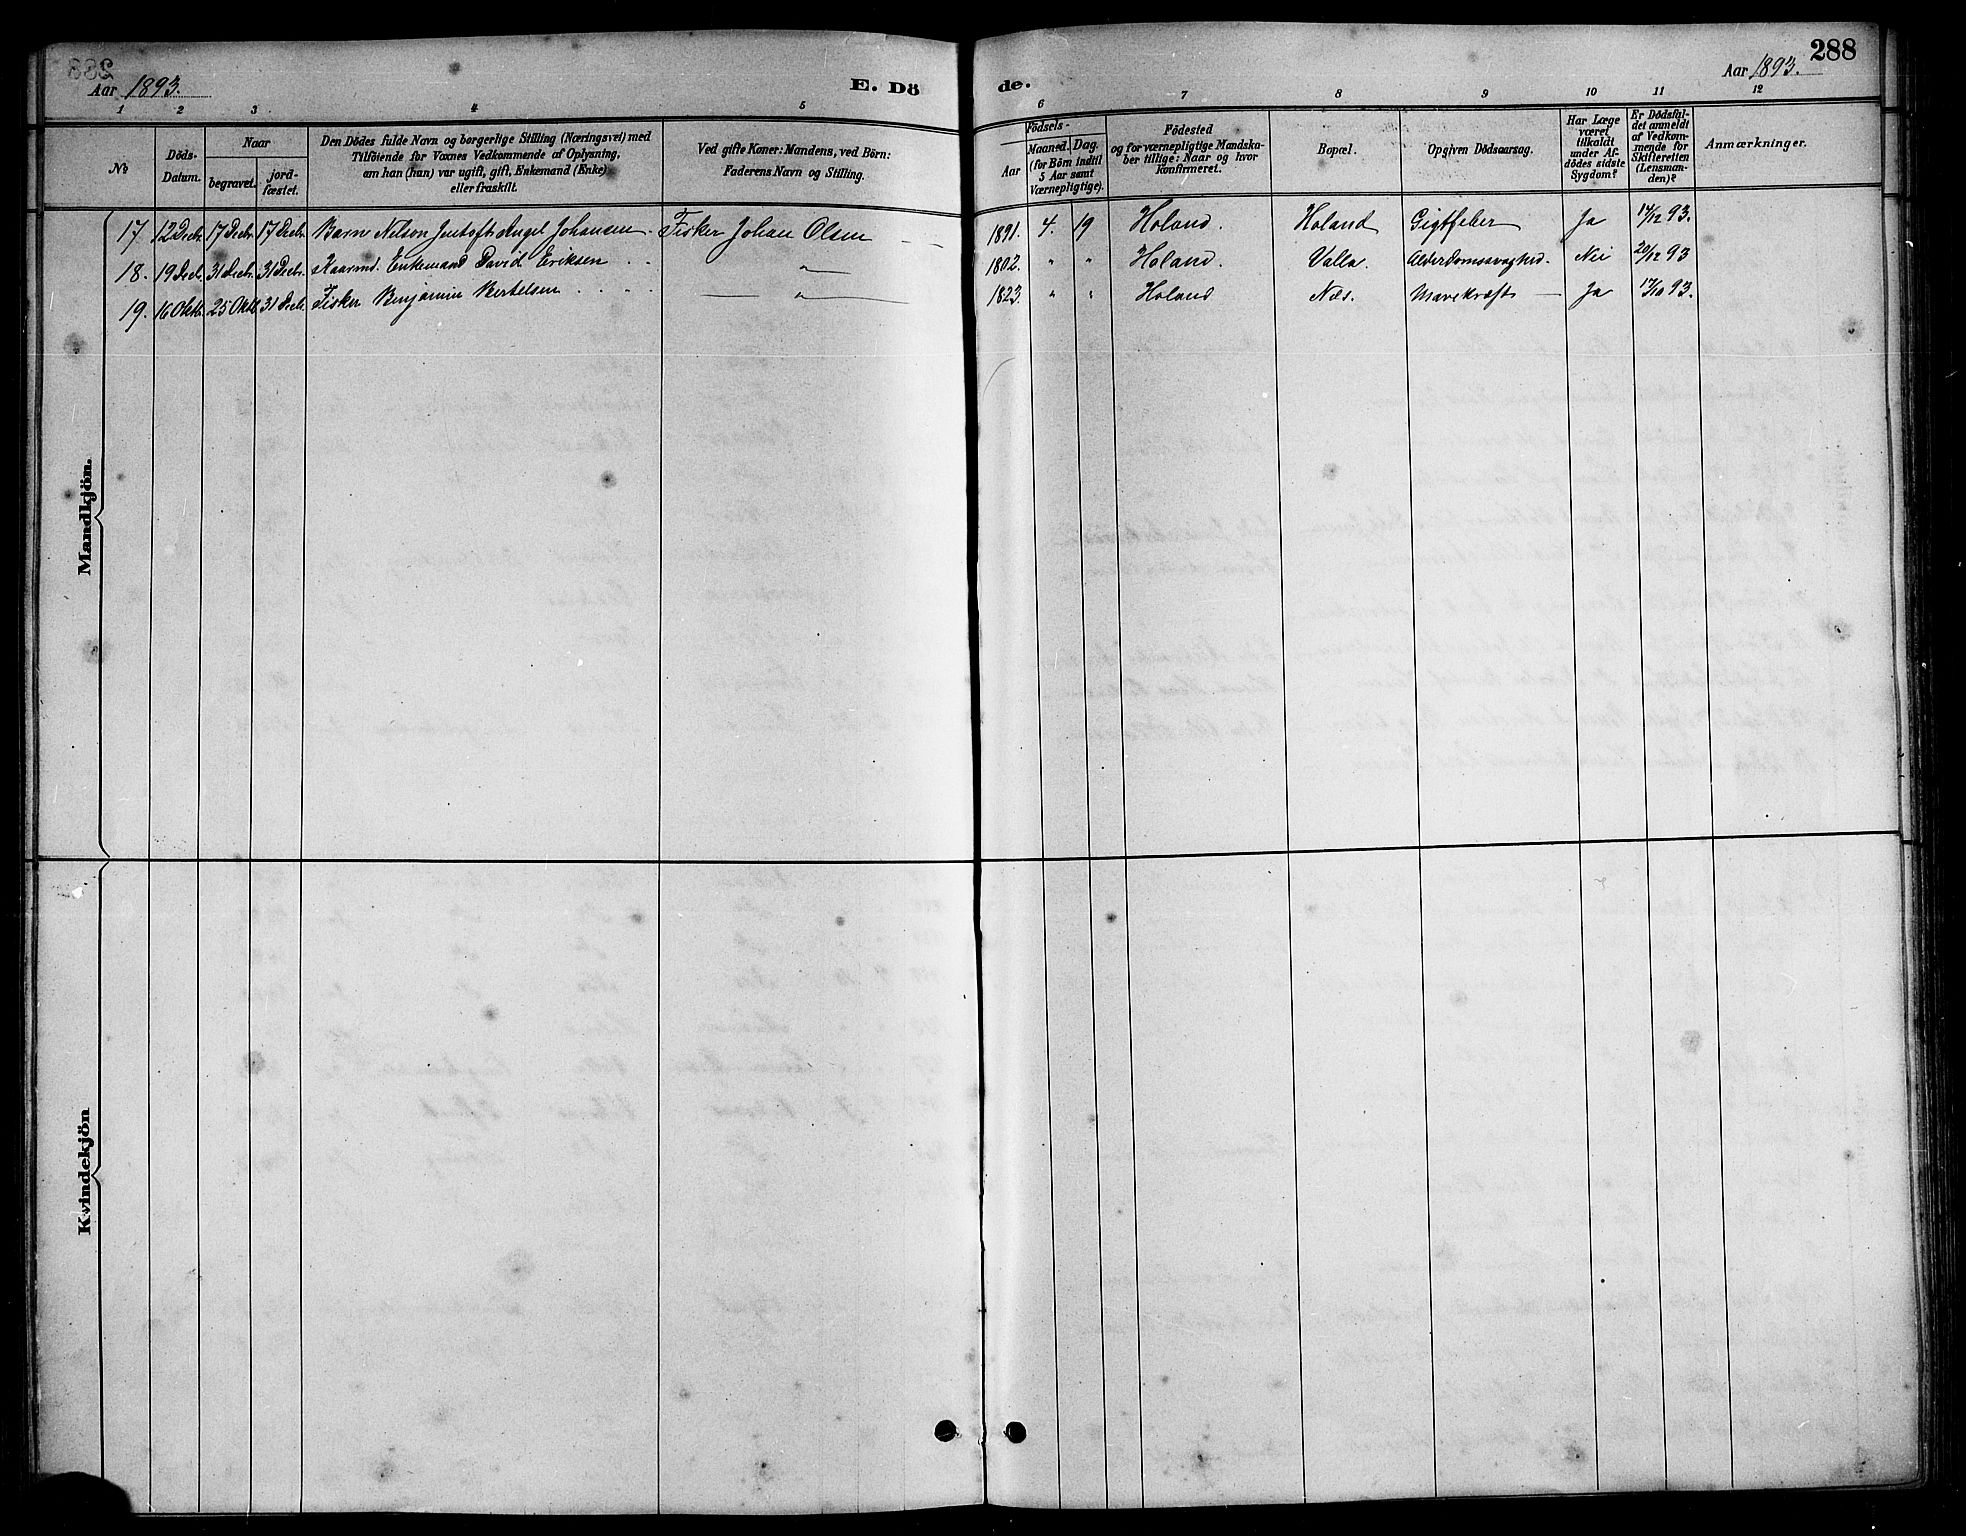 288
Aar 1893.
E. Dö
de.
Aar 1893.
1 2 3 4 5 6 7 8 9 10 11 12
No
Döds-Datum.
Naar
begravet.
jord-fæstet.
Den Dödes fulde Navn og borgerlige Stilling (Næringsvei) med
Tilföiende for Voxnes Vedkommende af Oplysning,
om han (hun) var ugift, gift, Enkemand (Enke)
eller fraskilt.
Ved gifte Koner: Mandens, ved Börn:
Faderens Navn og Stilling.
Födsels-
Aar
Maaned.
Dag.
(for Börn indtil
5 Aar samt
Værnepligtige).
Födested
og for værnepligtige Mandska-
ber tillige: Naar og hvor
konfirmeret.
Bopæl.
Opgiven Dödsaarsag.
Har Læge
været
tilkaldt
under Af-
dödes sidste
Sygdom?
Er Dödsfal-
det anmeldt
af Vedkom-
mende for
Skifteretten
(Lensman-
den)?
Anmærkninger.
17. 12 Decbr. 17 Decbr. 17 Decbr. Barn Nelson Jentoft Angel Johansen. Fisker Johan Olsen 1891. 4. 19 Holand. Holand Gigtfeber Ja 17/12 93.
18. 19 Decbr. 31 Decbr. 31 Decbr. Kaarmd. Enkemand David Eriksen " 1802. " " Holand. Valla. Alderdomssvaghed. Nei 20/12 93
19. 16 Oktb. 25 Oktb. 31 Decb. Fisker Benjamin Bertelsen " 1823. " " Holand Næs. Mavekræft Ja 17/10 93.
Mandkjön.
Kvindekjön